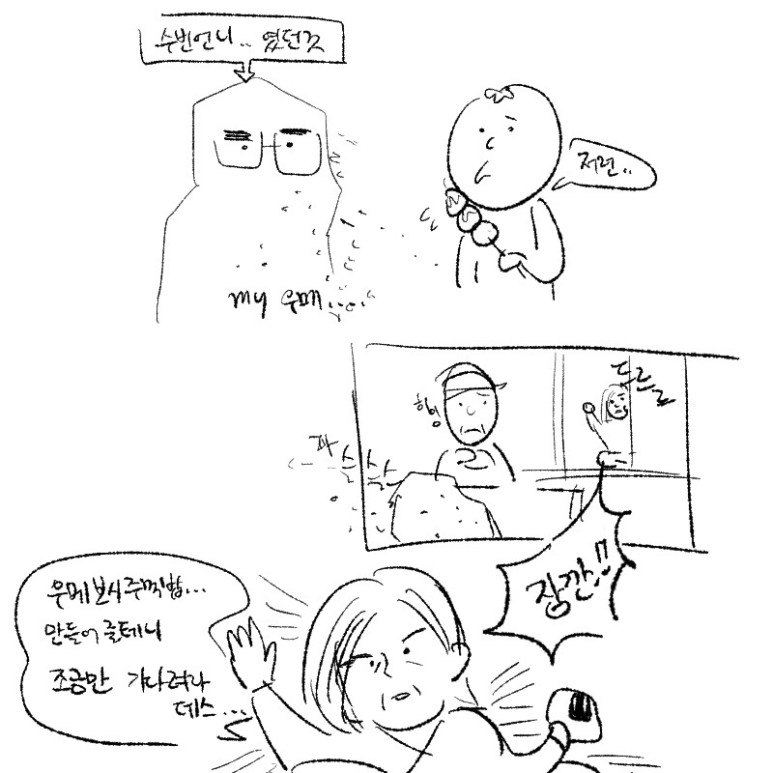 수빈언니.. 였던것
저런..
my 우메....
드르륵
힝
파스슥
잠깐!!
우메보시주먹밥...
만들어 줄테니
조금만 기다려라
데스...